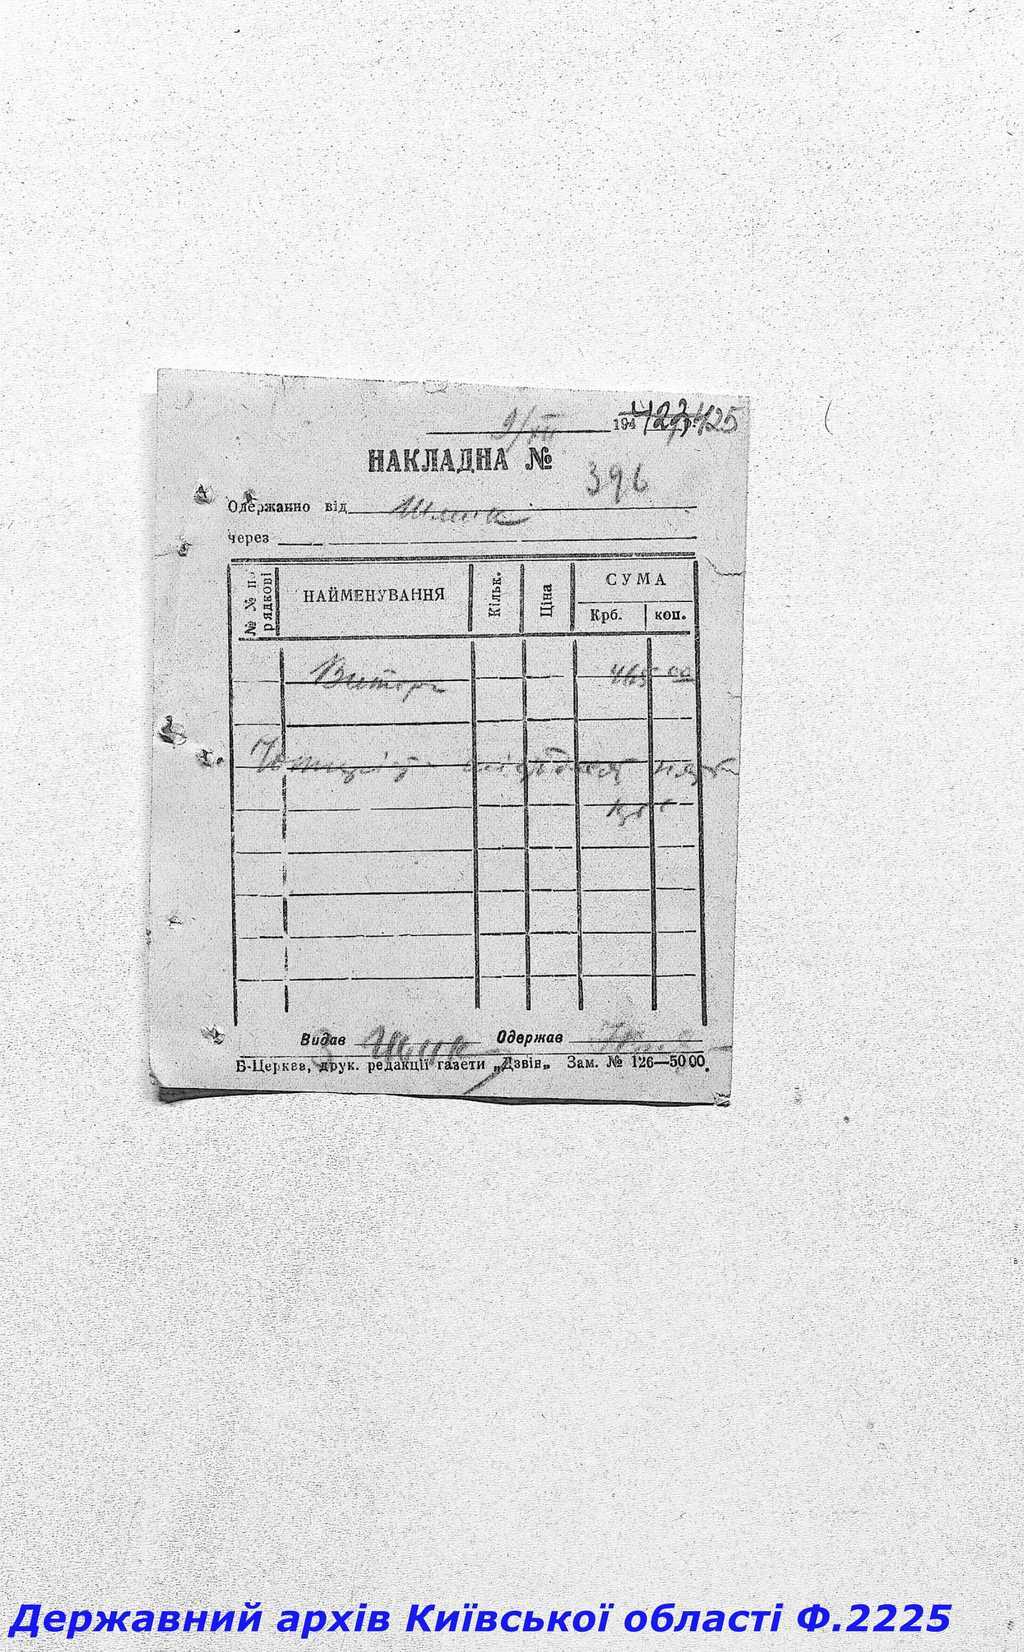 9/XII 194 р. 425
НАКЛАДНА №
396
Одержанно від
через
№ № п. рядкові НАЙМЕНУВАННЯ Кільк. Ціна СУМА
Крб. коп.
Виторг 465 00
Чотиріста шістдесят п'ять
крб
Видав Одержав
Б-Церква, друк. редакції газети „Дзвін„ Зам. № 126—5000.
Державний архів Київської області Ф.2225